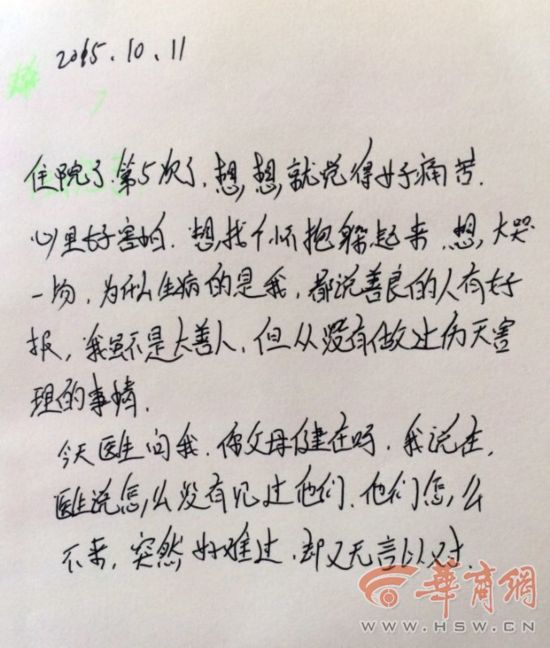 2015.10.11
住院了.第5次了.想,想,就觉得好痛苦.
心里好害怕.想,找个怀抱躲起来.想,大哭
一场,为什么生病的是我,都说善良的人有好
报,我虽不是大善人,但从没有做过伤天害
理的事情.
今天医生问我.你父母健在吗.我说在,
医生说怎,么没有见过他们.他们怎,么
不来,突然好难过,却又无言以对.
華商網
WWW.HSW.CN